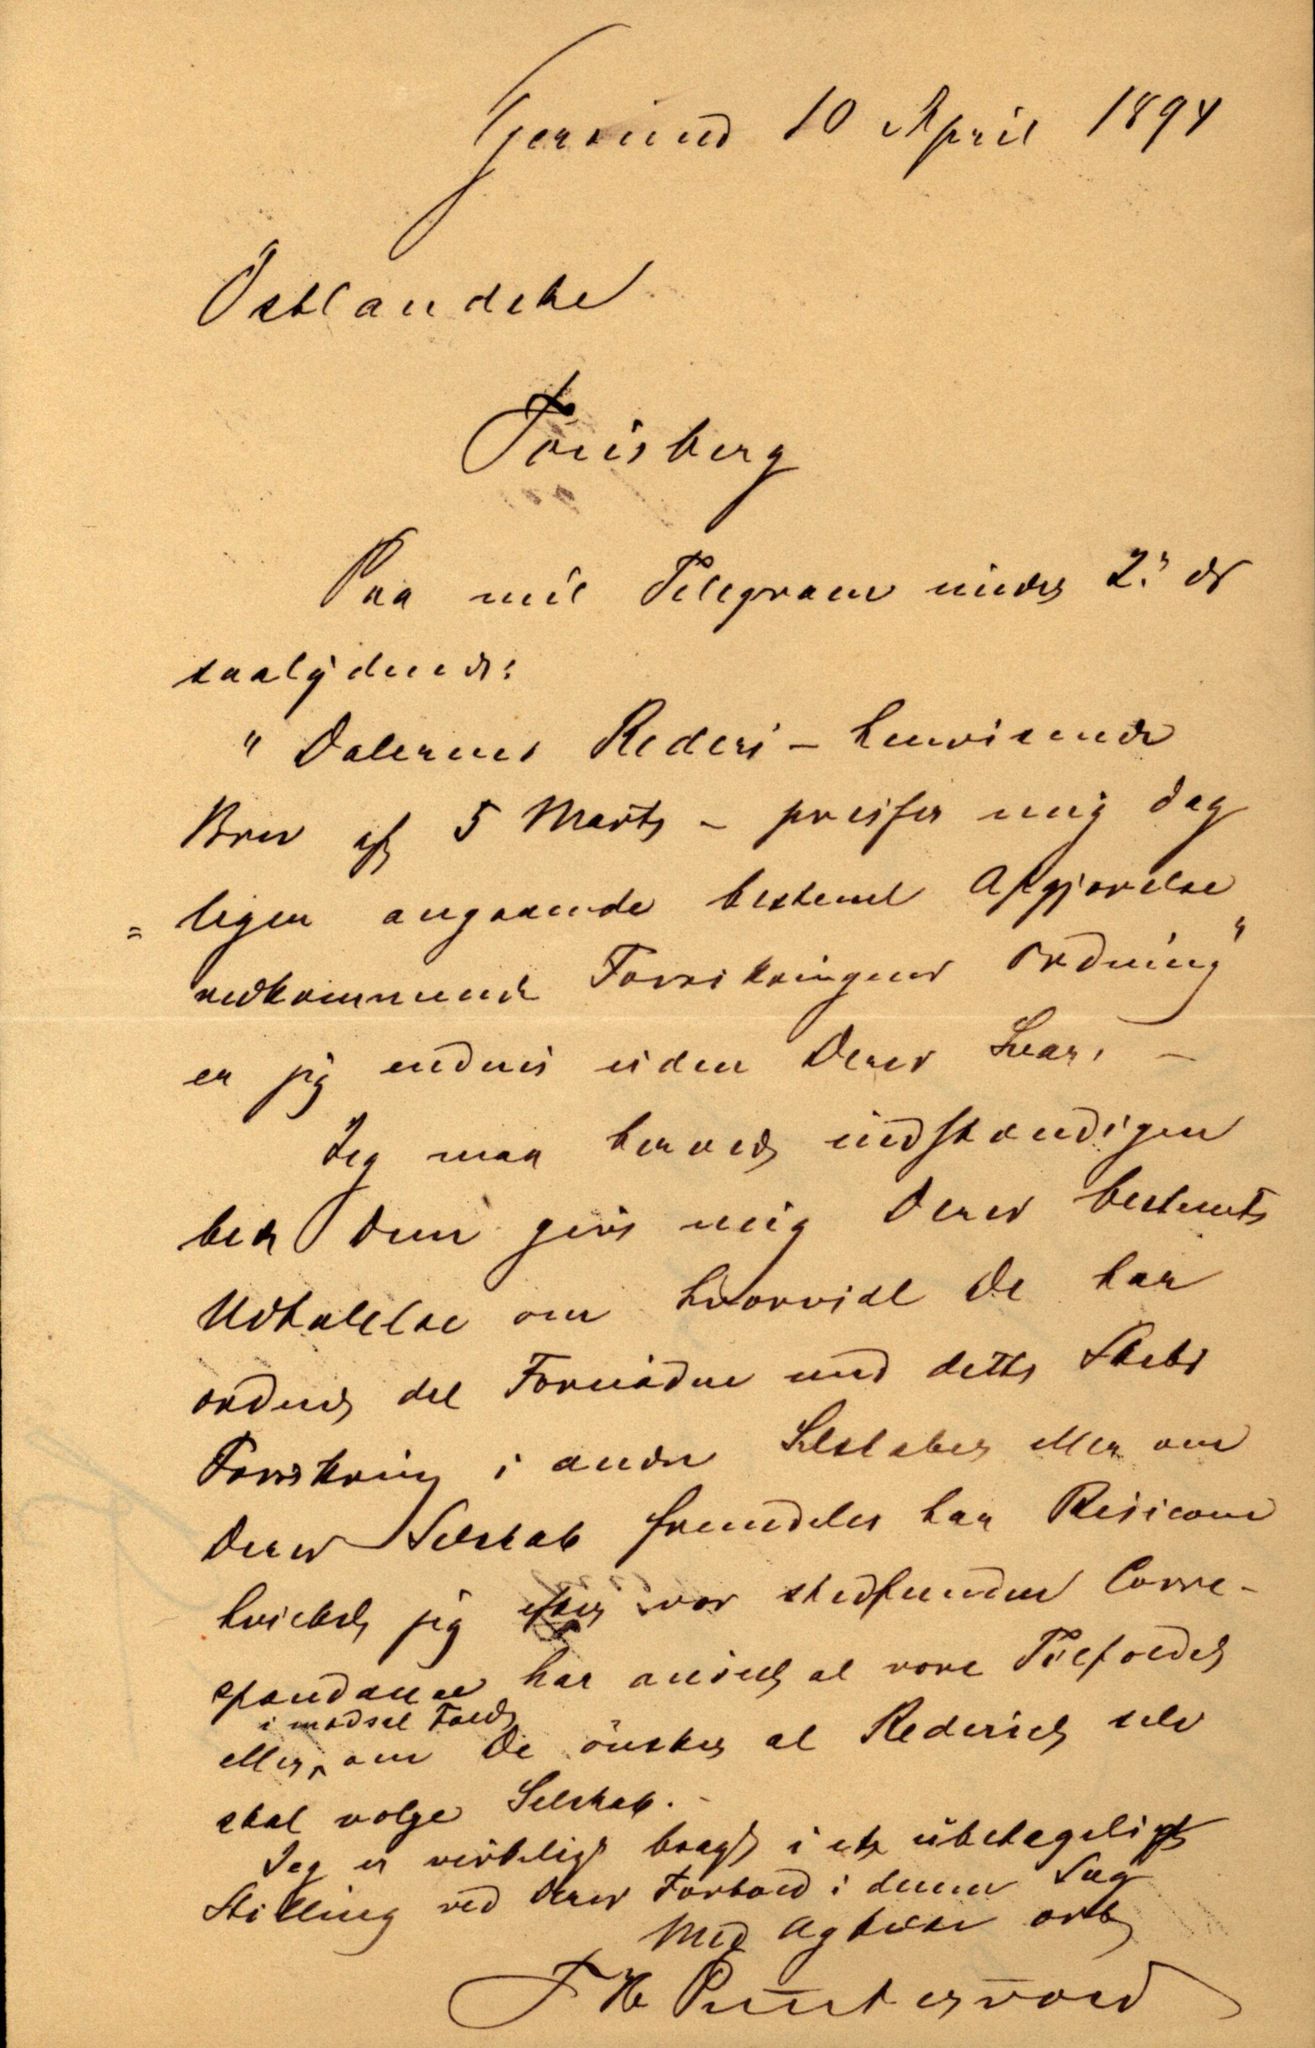 10 April 1894
Östlandske
Tönsberg
Paa mit Telegram under 2' ds
saalydende:
" Dalernes Rederi – henvisende
Brev af 5 Marts – presser mig dag
= ligen angaaende bestemt Afgjørelse
vedkommende Forsikringens Ordning"
er jeg endnu uden Deres Svar. –
Jeg maa herved indstændigen
bede Dem give mig Deres bestemte
Udtalelse om hvorvidt De har
ordnet det Fornødne med dette Skibs
Forsikring i andre Selskaber eller om
Deres Selskab fremdeles har Risicoen
hvilket jeg efter vor stedfundne Corre-
spondance har anseet at være Tilfældet
i modsat Fald
eller, om De ønsker at Rederiet selv
skal vælge Selskab. –
Jeg er virkeligt bragt i et ubehageligt
Stilling ved Deres Forhold i denne Sag
Med Agtelse erb
F H